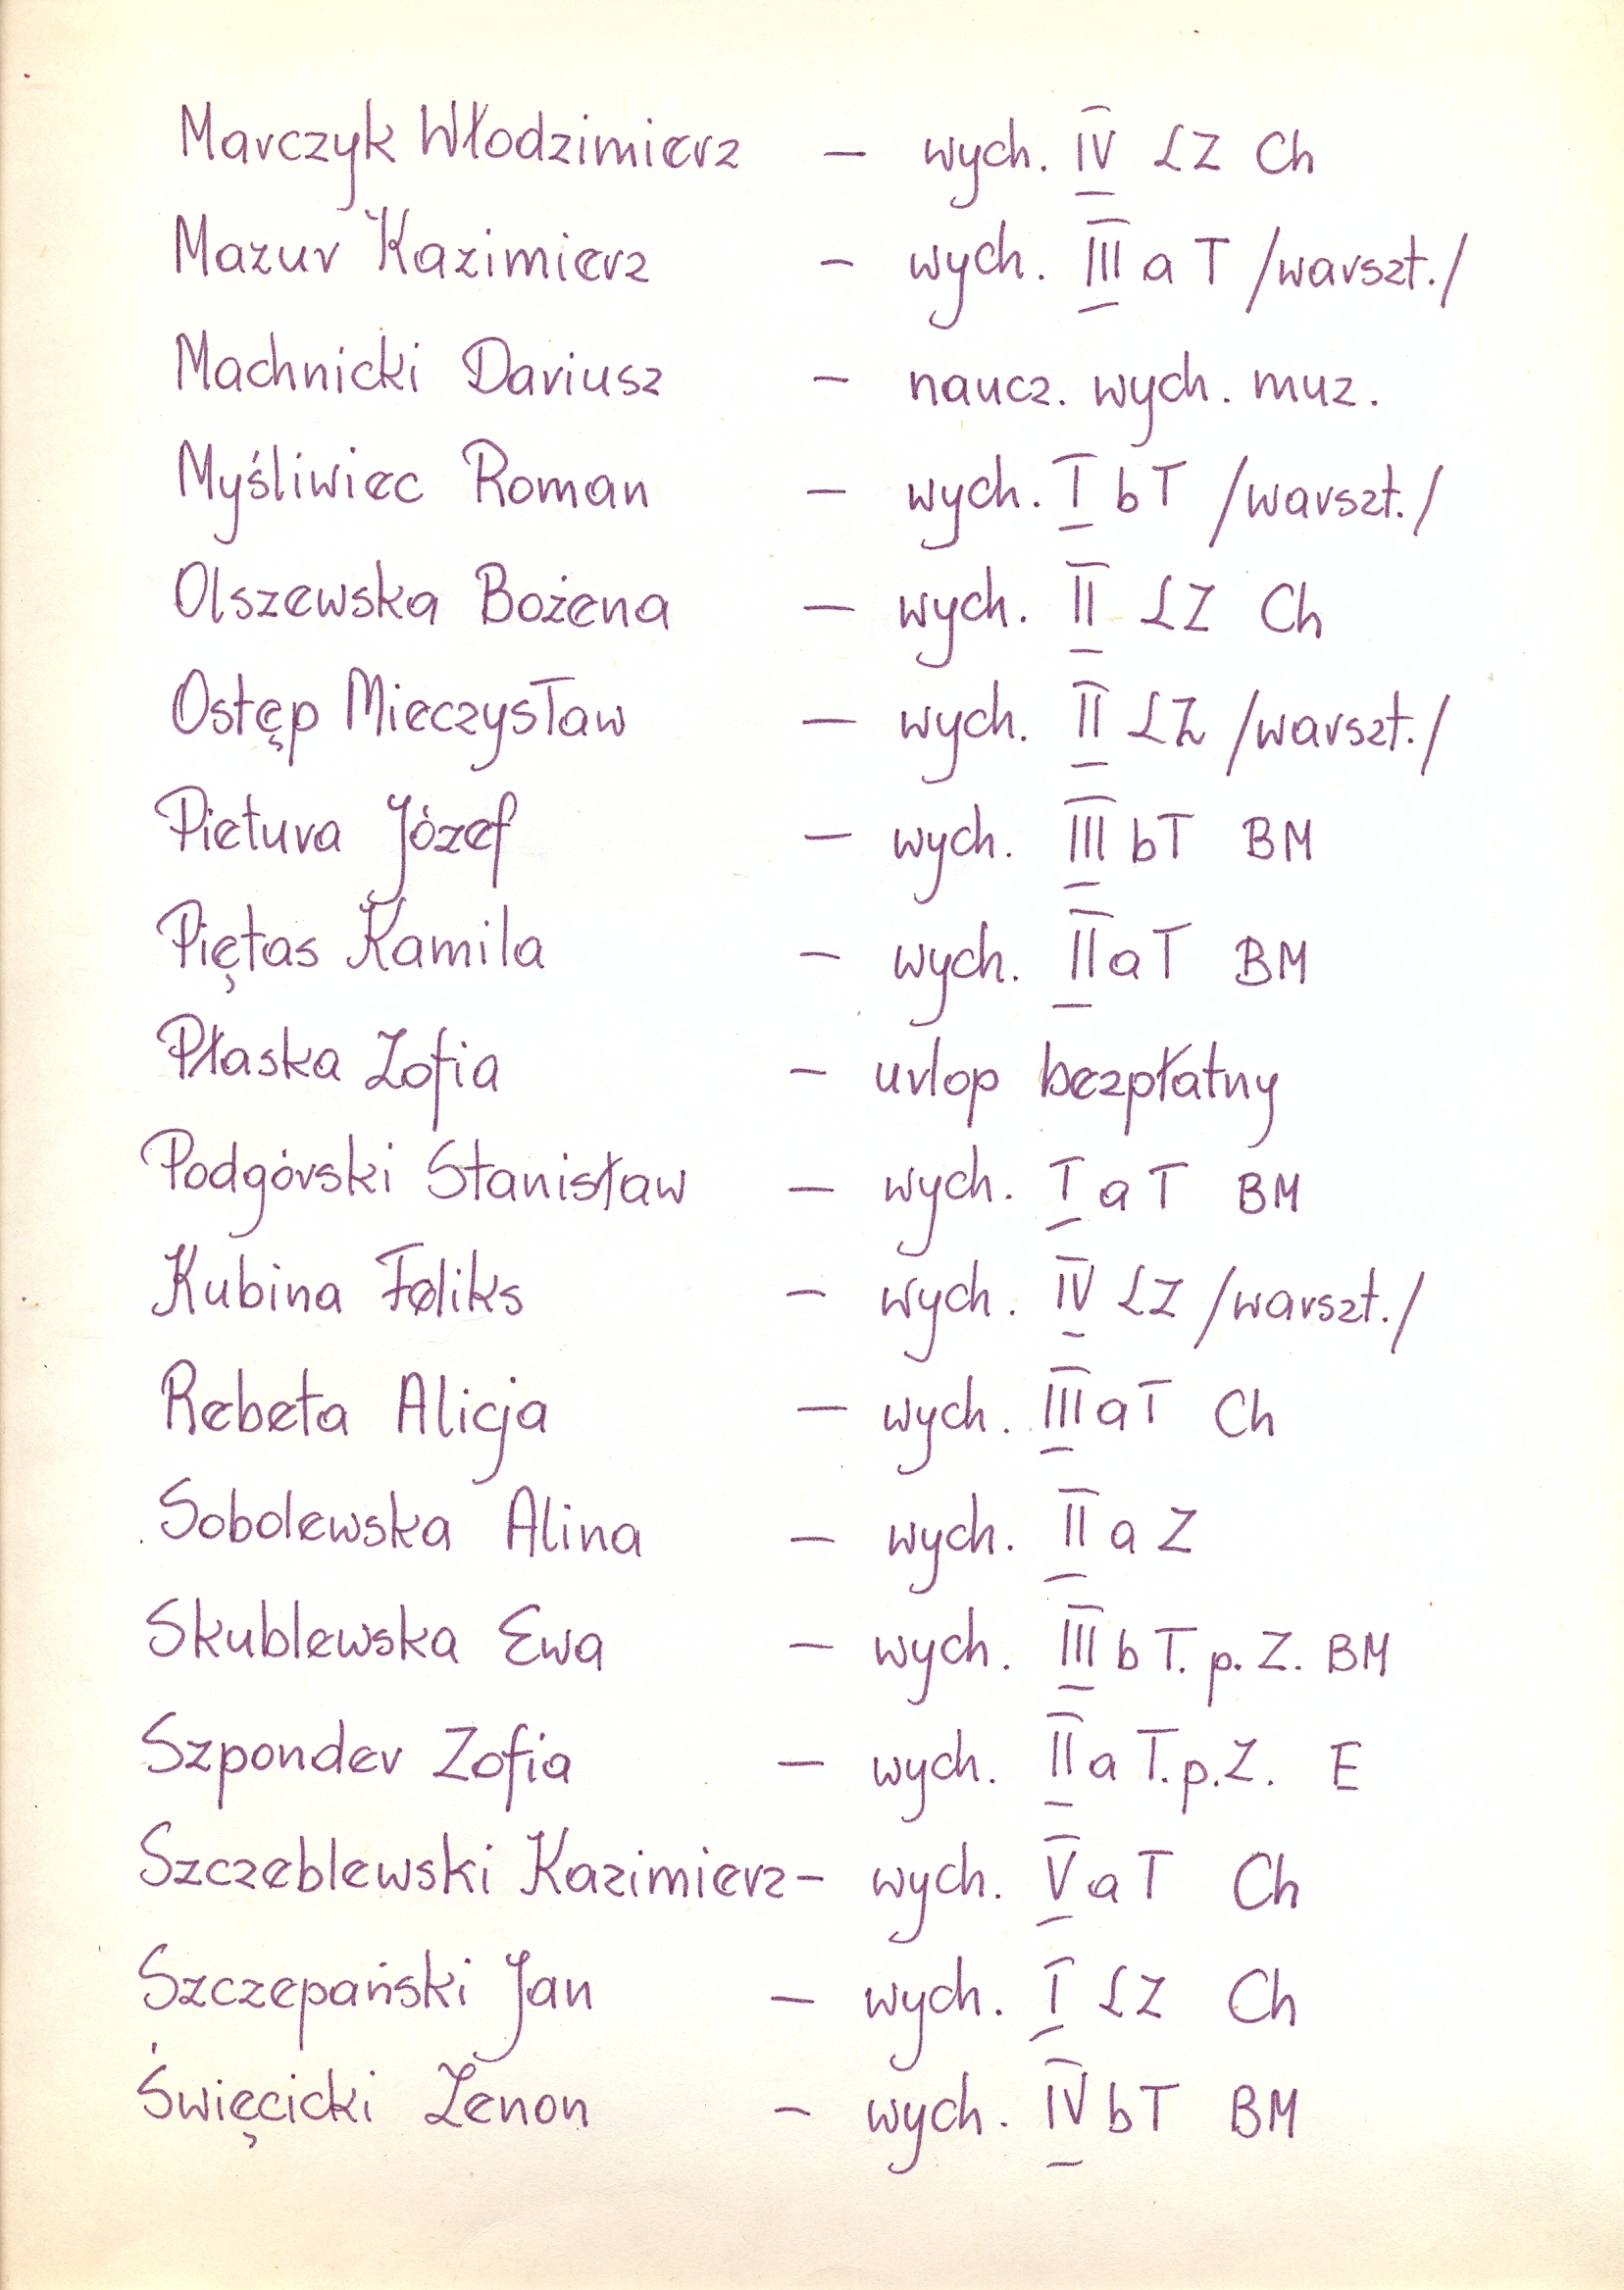 Marczyk Włodzimierz — wych. IV LZ Ch
Mazur Kazimierz — wych. III a T /warszt./
Machnicki Dariusz — naucz. wych. muz.
Myśliwiec Roman — wych. I b T /warszt./
Olszewska Bożena — wych. II LZ Ch
Ostęp Mieczysław — wych. II LZ /warszt./
Pietura Józef — wych. III bT BM
Piętas Kamila — wych. II a T BM
Płaska Zofia — urlop bezpłatny
Podgórski Stanisław — wych. I a T BM
Kubina Feliks — wych. IV LZ /warszt./
Rebeta Alicja — wych. III a T Ch
Sobolewska Alina — wych. II a Z
Skublewska Ewa — wych. III b T. p. Z. BM
Szponder Zofia — wych. II a T. p. Z. E
Szczeblewski Kazimierz — wych. V a T Ch
Szczepański Jan — wych. I LZ Ch
Święcicki Zenon — wych. IV b T BM